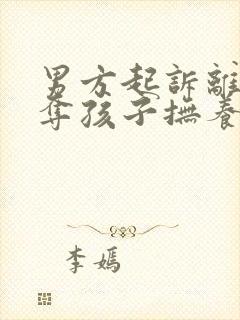 男方起訴離
奪孩子撫養
李嫣